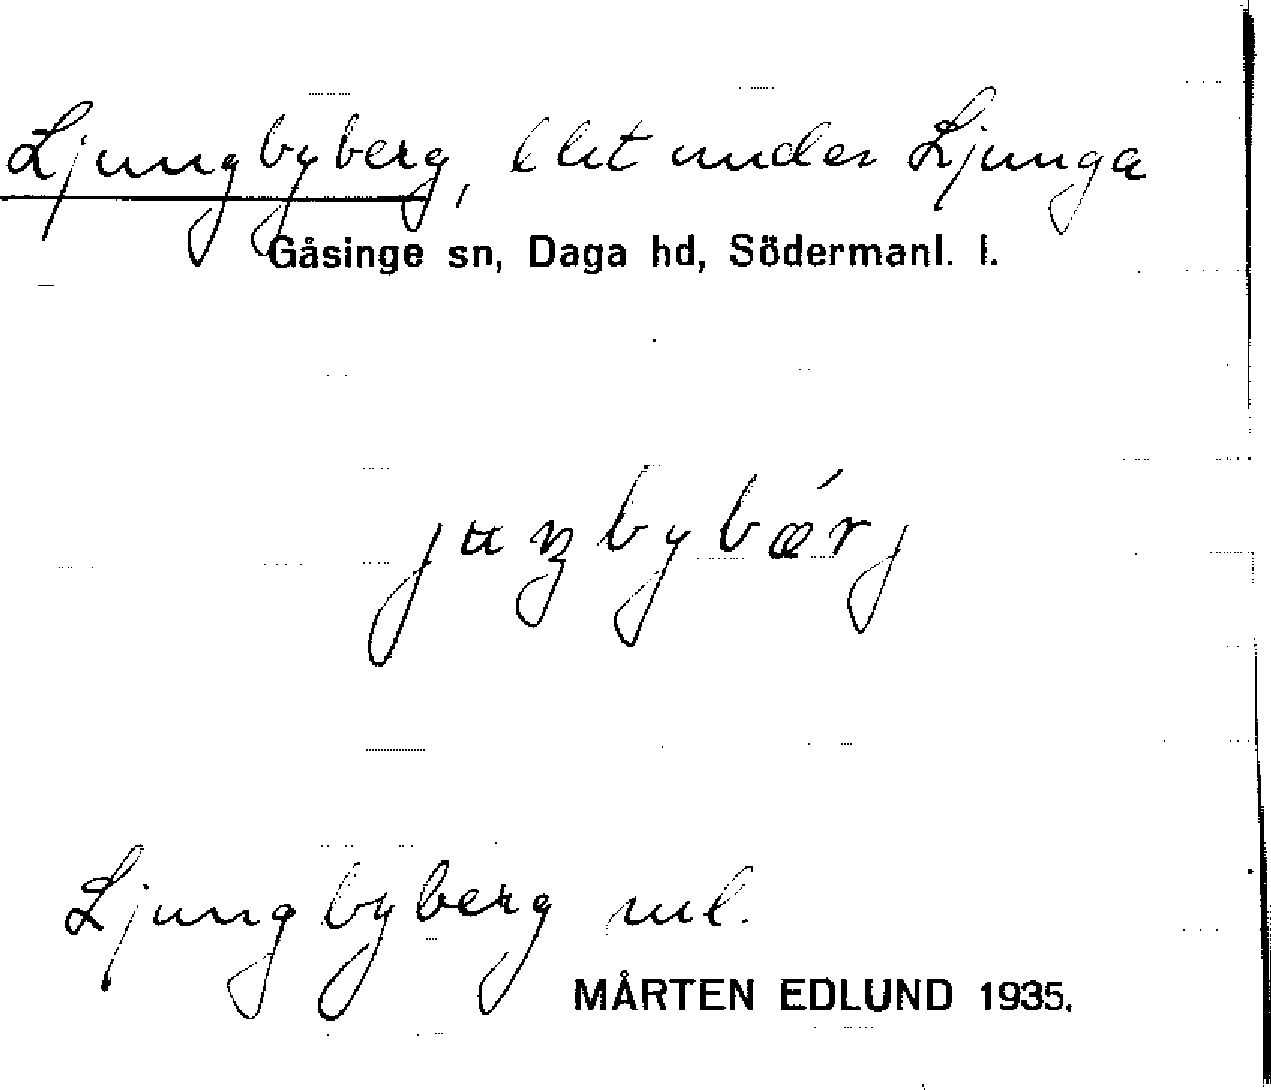 Ljungbyberg, l het under Ljunga
Gåsinge sn, Daga hd, Södermanl. l.
juŋbybǽrj
Ljungbyberg ml.
MÅRTEN EDLUND 1935.